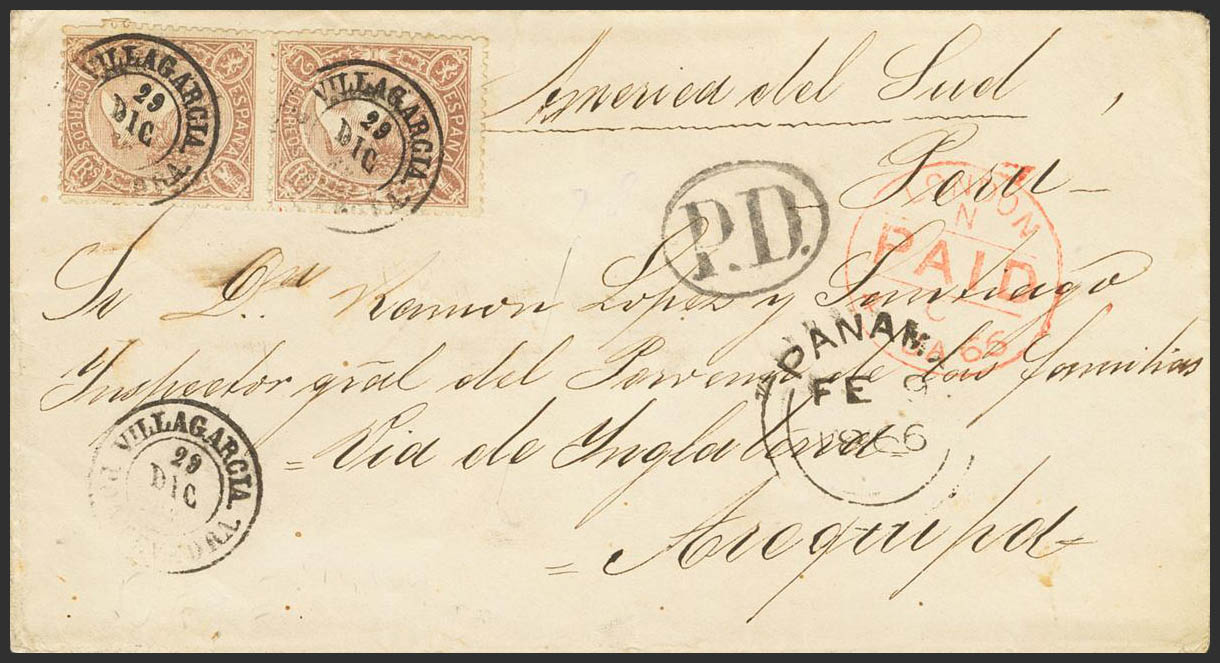 VILLAGARCIA.
29
DIC
ESPAÑA
CORREOS
2
VILLAGARCIA.
29
DIC
ESPAÑA
CORREOS
America del Sud,
Peru
P.D.
LONDON
N
PAID
C
JA 66
Sr Dn Ramon Lopez y Santiago
Inspector gral del Porvenir de las familias
PANAMA
FE
1866
= Via de Inglaterra =
VILLAGARCIA.
29
DIC
PONTEVEDRA
= Arequipa =